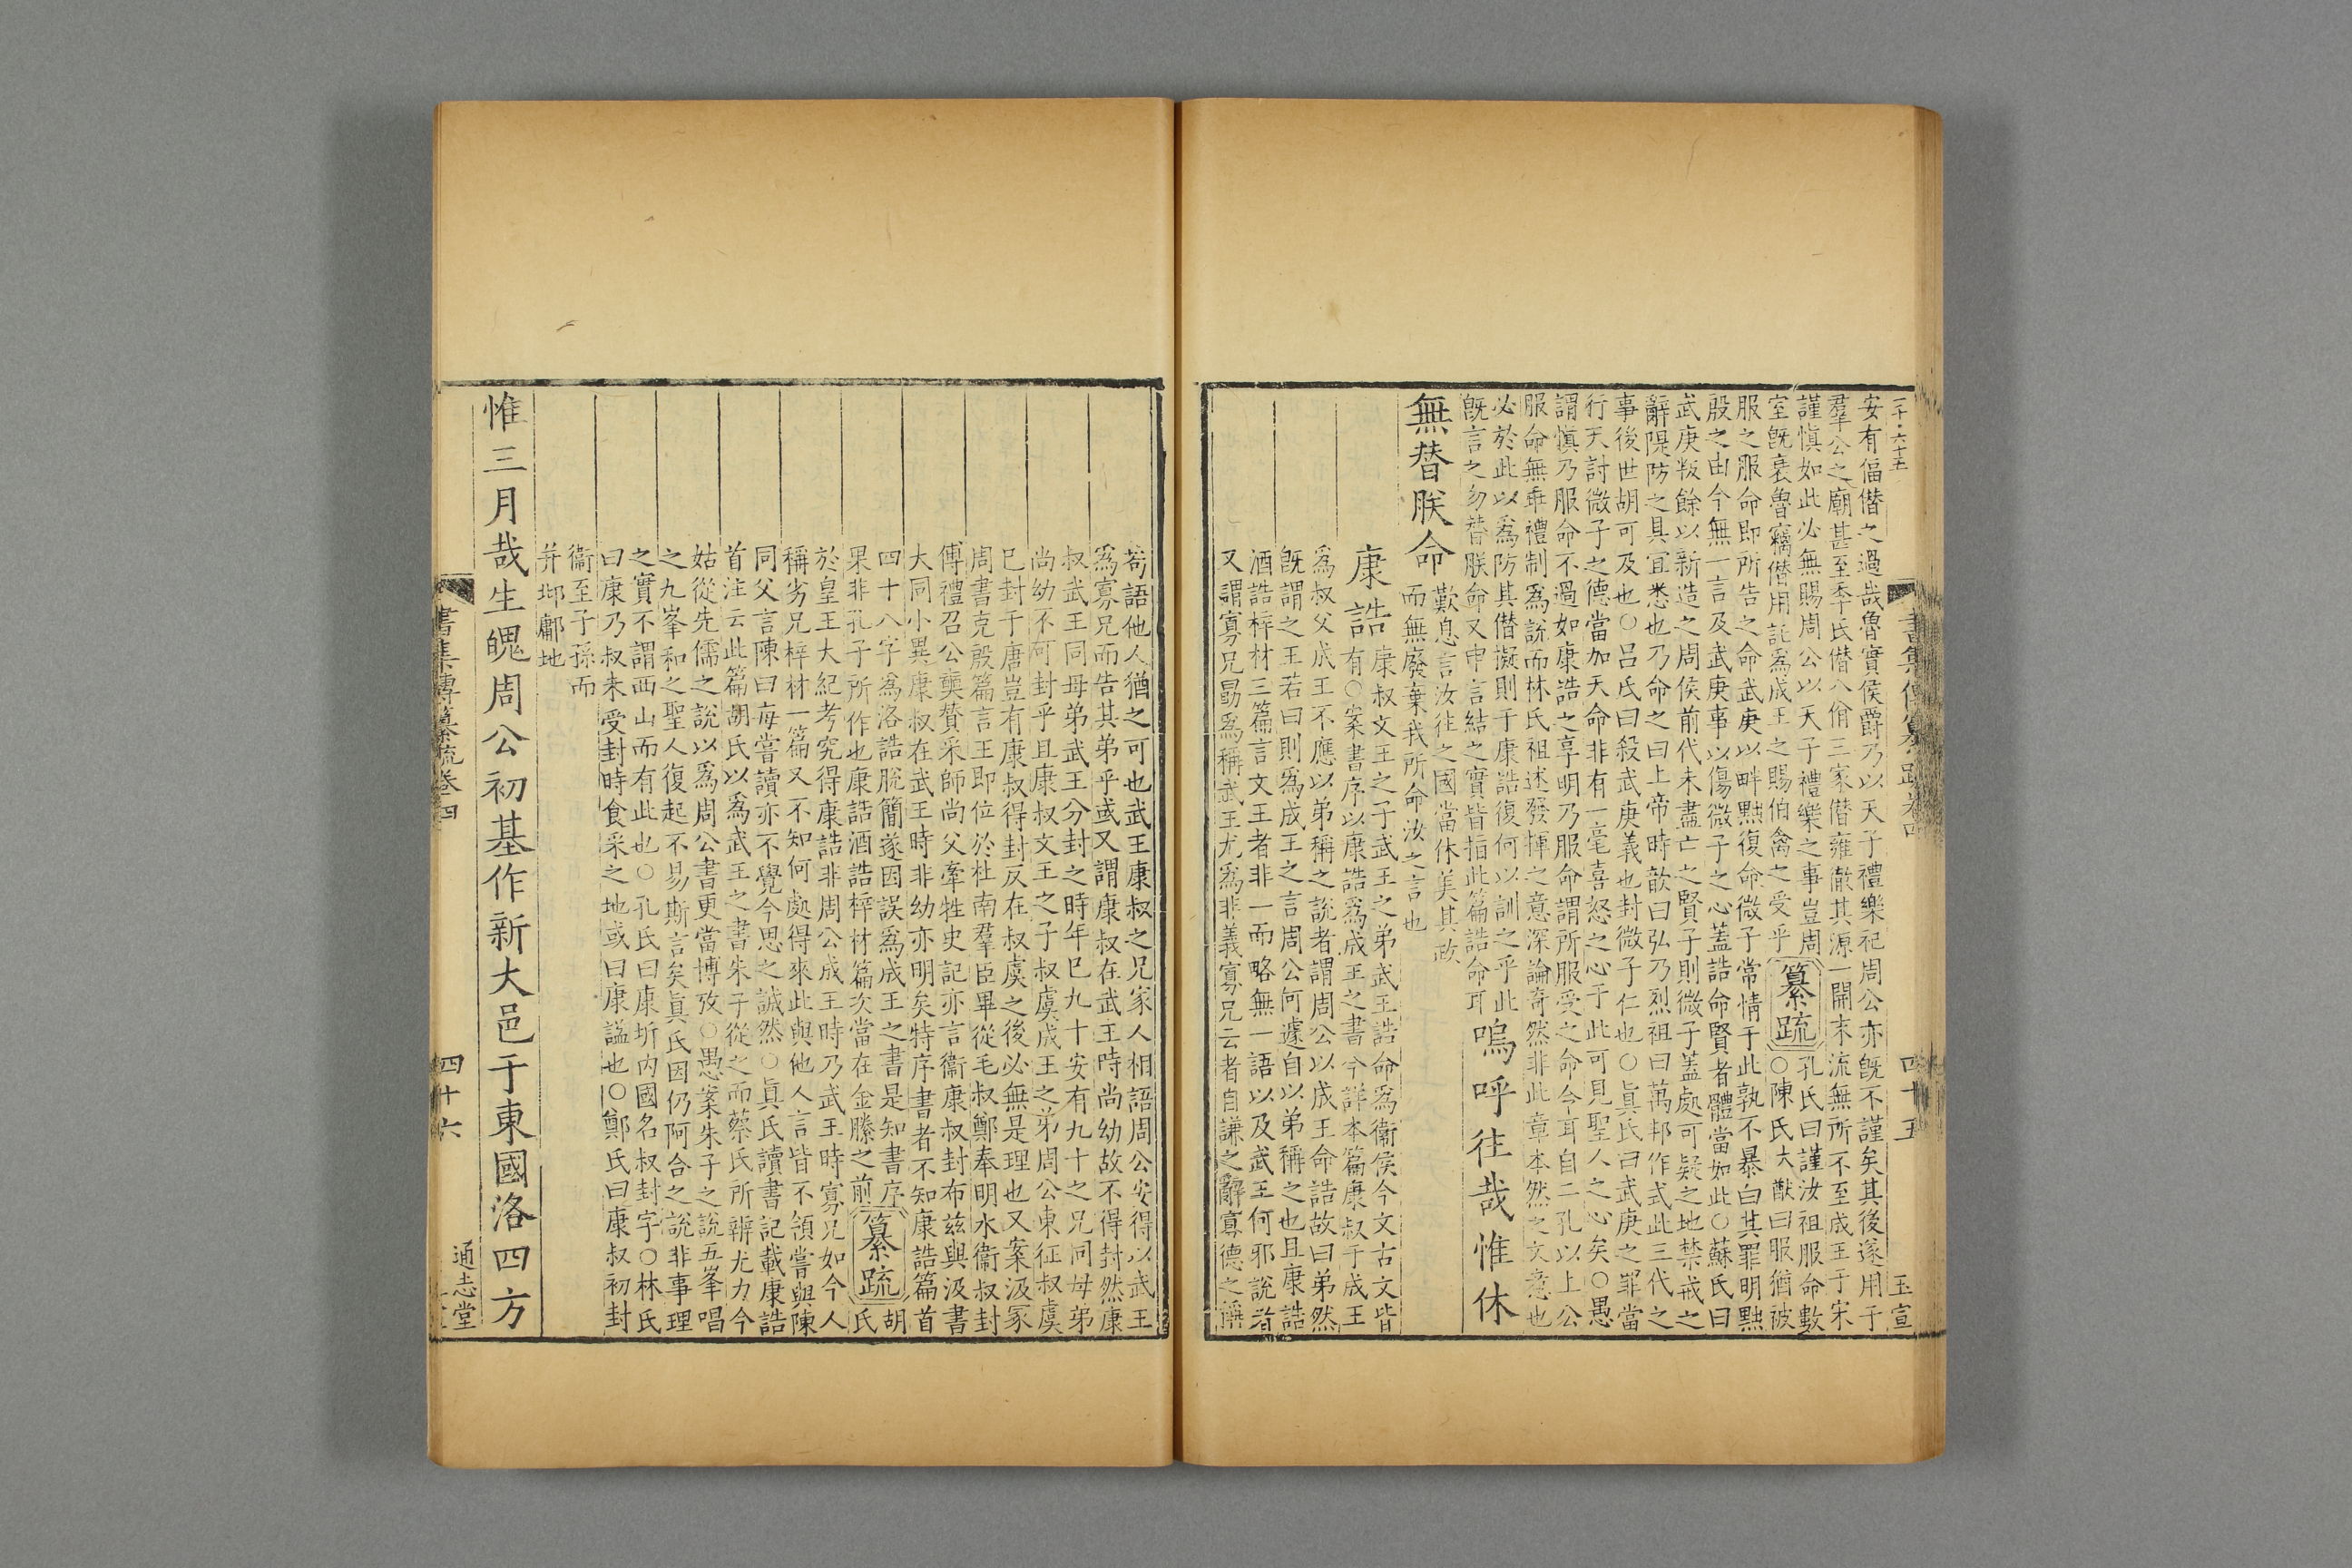 二千·六十五
書集傳纂疏卷四
四十五
玉宣
安有偪僭之過哉魯實侯爵乃以天子禮樂祀周公亦旣不謹矣其後遂用于
羣公之廟甚至季氏僭八佾三家僭雍徹其源一開末流無所不至成王于宋
謹愼如此必無賜周公以天子禮樂之事豈周
室旣衰魯竊僭用託爲成王之賜伯禽之受乎
纂疏
孔氏曰謹汝祖服命數
○陳氏大猷曰服猶被
服之服命卽所告之命武庚以畔黜復命微子常情于此孰不暴白其罪明黜
殷之由今無一言及武庚事以傷微子之心蓋誥命賢者體當如此○蘇氏曰
武庚叛餘以新造之周侯前代未盡亡之賢子則微子蓋處可疑之地禁戒之
辭隄防之具宜悉也乃命之曰上帝時歆曰弘乃烈祖曰萬邦作式此三代之
事後世胡可及也○呂氏曰殺武庚義也封微子仁也○眞氏曰武庚之罪當
行天討微子之德當加天命非有一毫喜怒之心于此可見聖人之心矣○愚
謂愼乃服命不過如康誥之享明乃服命謂所服受之命今耳自二孔以上公
服命無乖禮制爲說而林氏祖述發揮之意深論奇然非此章本然之文意也
必於此以爲防其僭擬則于康誥復何以訓之乎此
旣言之勿替朕命又申言結之實皆指此篇誥命耳
嗚呼往哉惟休
無替朕命
歎息言汝往之國當休美其政
而無廢棄我所命汝之言也
康誥
康叔文王之子武王之弟武王誥命爲衞侯今文古文皆
有○案書序以康誥爲成王之書今詳本篇康叔于成王
爲叔父成王不應以弟稱之說者謂周公以成王命誥故曰弟然
旣謂之王若曰則爲成王之言周公何遽自以弟稱之也且康誥
酒誥梓材三篇言文王者非一而略無一語以及武王何邪說者
又謂寡兄勗爲稱武王尤爲非義寡兄云者自謙之辭寡德之稱
苟語他人猶之可也武王康叔之兄家人相語周公安得以武王
爲寡兄而告其弟乎或又謂康叔在武王時尚幼故不得封然康
叔武王同母弟武王分封之時年已九十安有九十之兄同母弟
尚幼不可封乎且康叔文王之子叔虞成王之弟周公東征叔虞
已封于唐豈有康叔得封反在叔虞之後必無是理也又案汲冢
周書克殷篇言王卽位於社南羣臣畢從毛叔鄭奉明水衞叔封
傅禮召公奭贊采師尚父牽牲史記亦言衞康叔封布茲與汲書
大同小異康叔在武王時非幼亦明矣特序書者不知康誥篇首
四十八字爲洛誥脫簡遂因誤爲成王之書是知書序
果非孔子所作也康誥酒誥梓材篇次當在金縢之前
纂疏
胡
氏
於皇王大紀考究得康誥非周公成王時乃武王時寡兄如今人
稱劣兄梓材一篇又不知何處得來此與他人言皆不領嘗與陳
同父言陳曰每嘗讀亦不覺今思之誠然○眞氏讀書記載康誥
首注云此篇胡氏以爲武王之書朱子從之而蔡氏所辨尤力今
姑從先儒之說以爲周公書更當博攷○愚案朱子之說五峯唱
之九峯和之聖人復起不易斯言矣眞氏因仍阿合之說非事理
之實不謂西山而有此也○孔氏曰康圻內國名叔封字○林氏
曰康乃叔未受封時食采之地或曰康謚也○鄭氏曰康叔初封
衞至子孫而
幷邶鄘地
惟三月哉生魄周公初基作新大邑于東國洛四方
書集傳纂疏卷四
四十六
通志堂